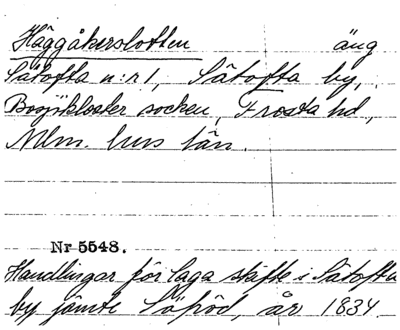 Häggåkerslotten äng
Sätofta n:r 1, Sätofta by,
Bosjökloster socken, Frosta hd,
Mlm. hus län.
Nr 5548.
Handlingar för laga skifte i Sätofta
by jämte Söfröd, år 1834